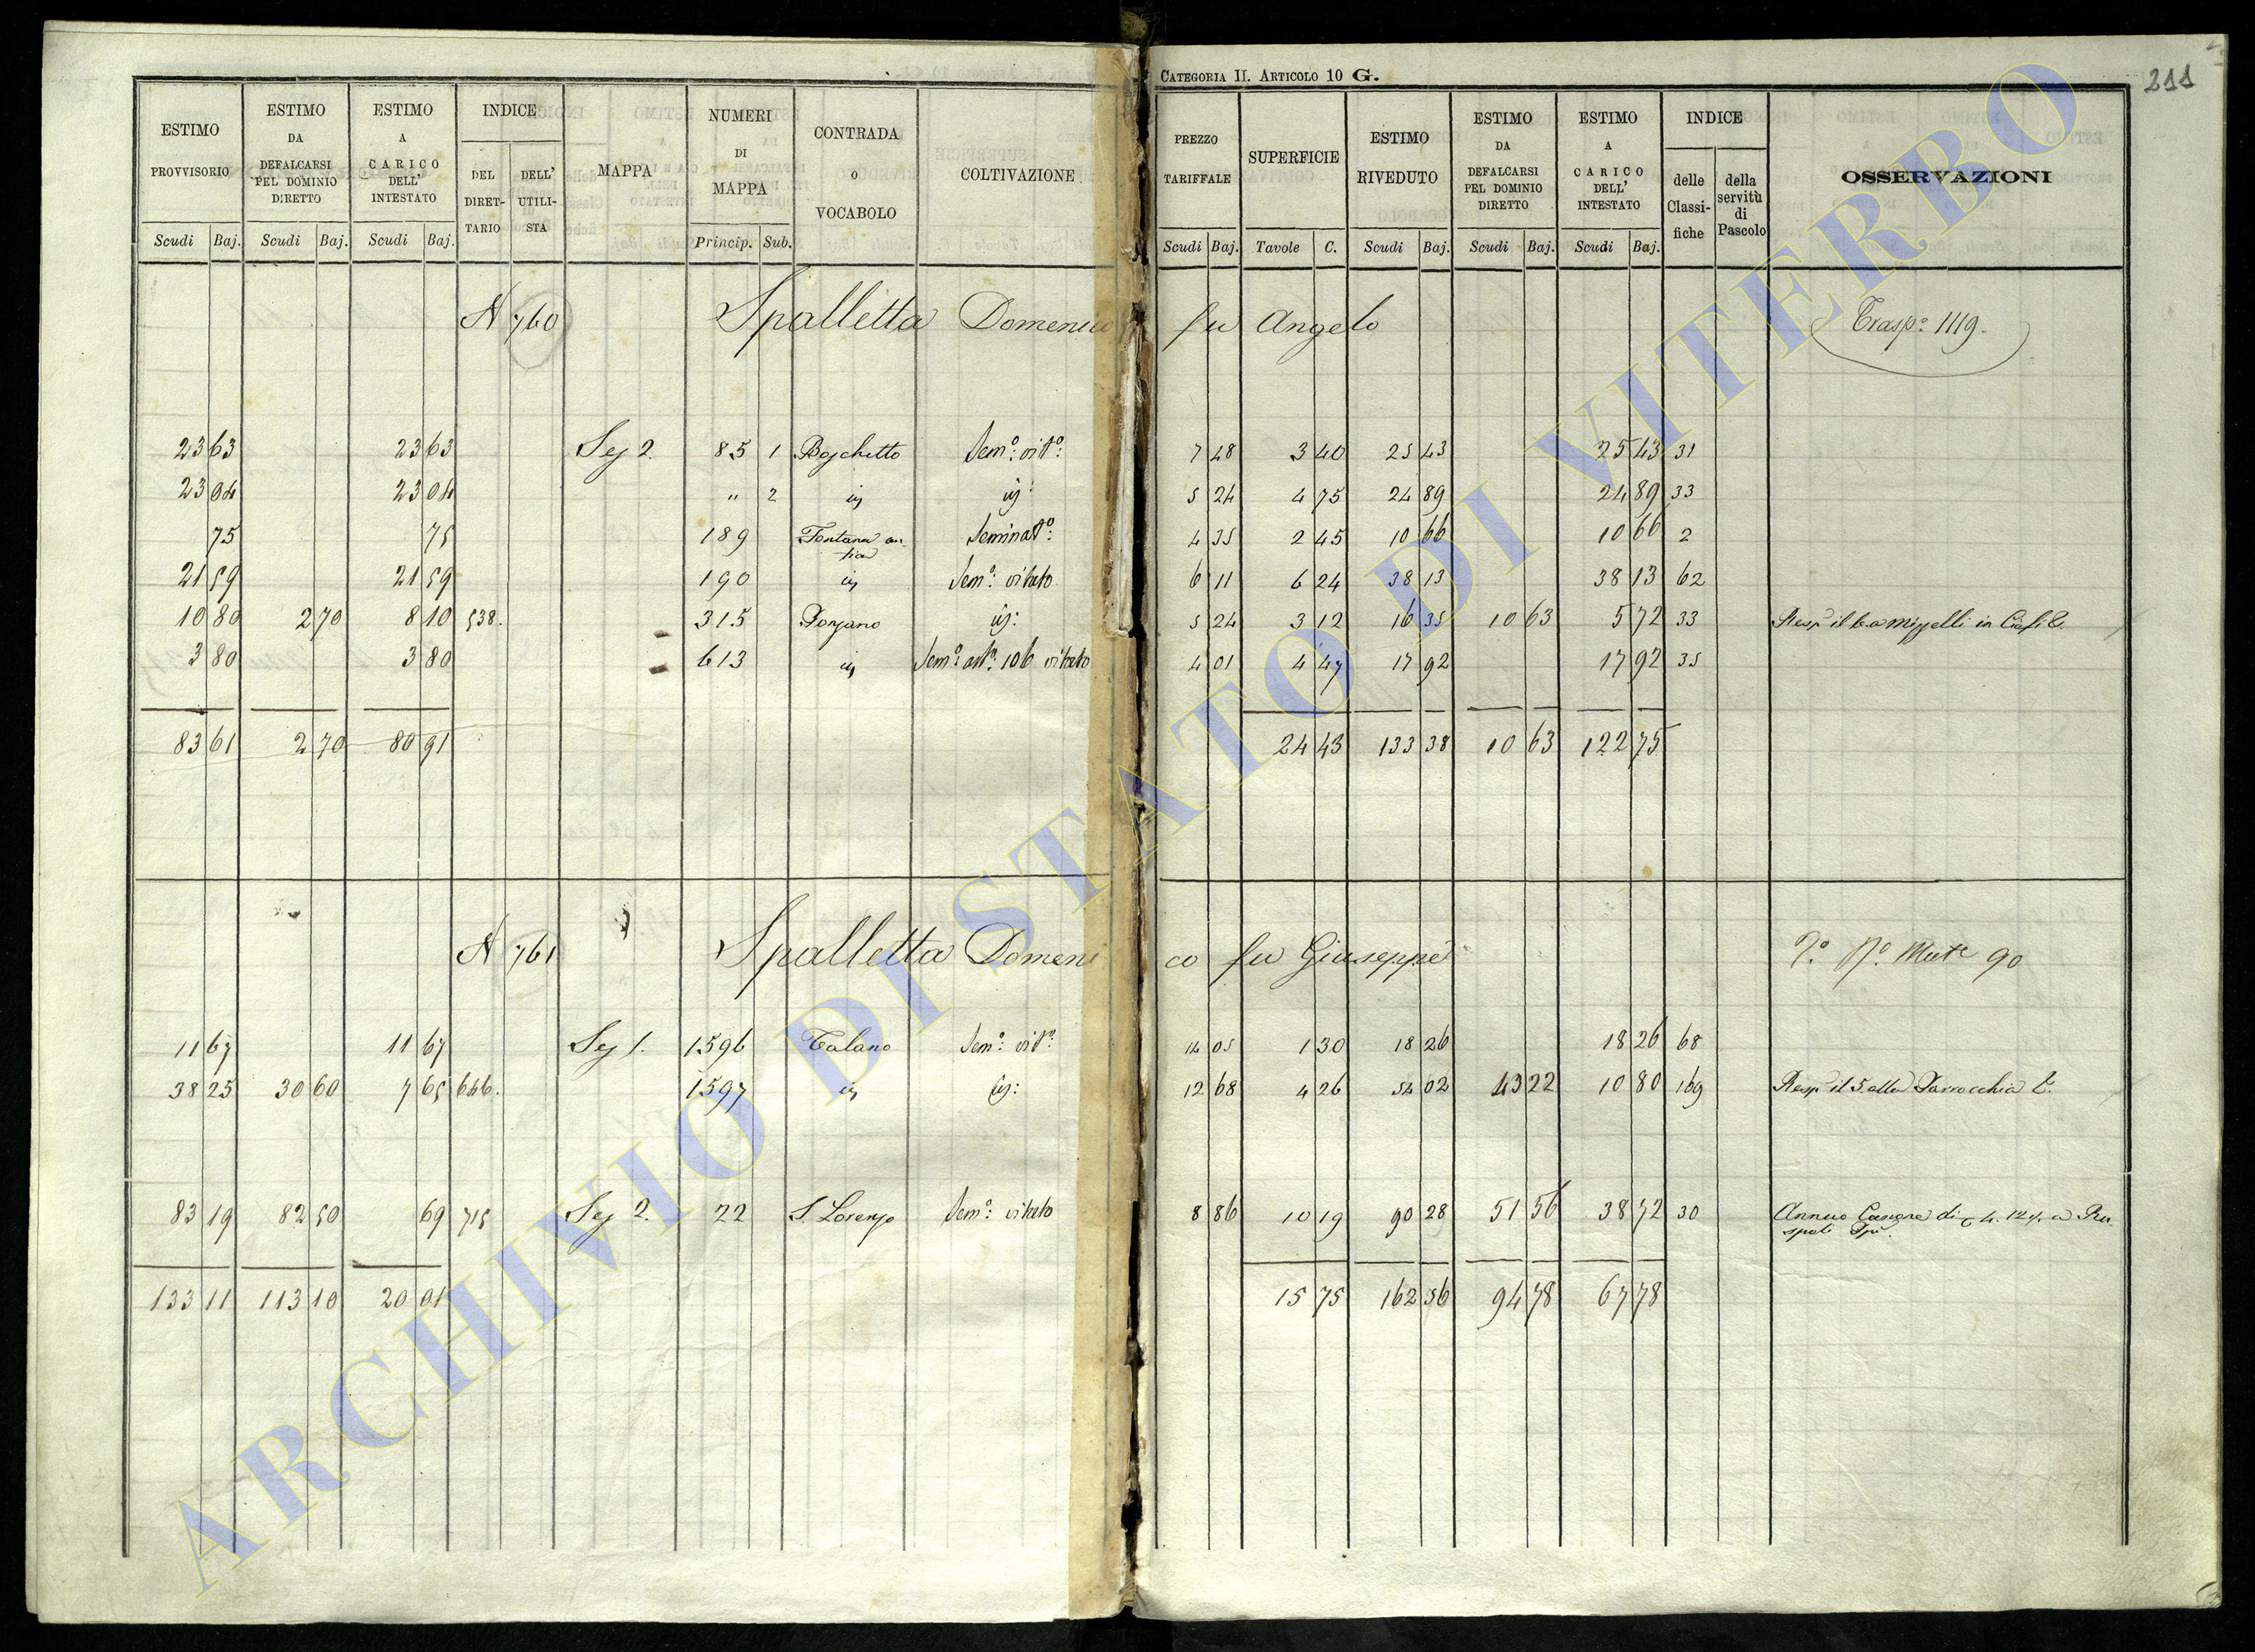 CATEGORIA II. ARTICOLO 10 G.
211
ESTIMO PROVVISORIO
ESTIMO DA DEFALCARSI PEL DOMINIO DIRETTO
ESTIMO A CARICO DELL' INTESTATO
INDICE
DEL DIRETTARIO
DELL' UTILISTA
MAPPA
NUMERI DI MAPPA
CONTRADA o VOCABOLO
COLTIVAZIONE
PREZZO TARIFFALE
SUPERFICIE
ESTIMO RIVEDUTO
ESTIMO DA DEFALCARSI PEL DOMINIO DIRETTO
ESTIMO A CARICO DELL' INTESTATO
INDICE
delle Classifiche
della servitù di Pascolo
OSSERVAZIONI
Scudi Baj. Scudi Baj. Scudi Baj. Princip. Sub. Scudi Baj. Tavole C. Scudi Baj. Scudi Baj. Scudi Baj.
N 760 Spalletta Domenico fu Angelo Trasp.º 1119.
23 63 23 63 Sez 2. 85 1 Boschetto Sem.º vit.º 7 48 3 40 25 43 25 43 31
23 04 23 04 " 2 5 24 4 75 24 89 24 89 33
75 75 189 Fontana Seminat.º 4 35 2 45 10 66 10 66 2
21 59 21 59 190 Sem.º vitato 6 11 6 24 38 13 38 13 62
10 80 2 70 8 10 538. 315 5 24 3 12 16 35 10 63 5 72 33
3 80 3 80 613 vitato 4 01 4 47 17 92 17 92 35
83 61 2 70 80 91 24 43 133 38 10 63 122 75
N 761 Spalletta Domenico fu Giuseppe 90
11 67 11 67 Sez 1. 1596 Talano Sem.º vit.º 14 05 1 30 18 26 18 26 68
38 25 30 60 7 65 646. 1597 12 68 4 26 54 02 43 22 10 80 169 Resp il 5. alla Parrocchia
83 19 82 50 69 715 Sez 2. 22 S. Lorenzo Sem.º vitato 8 86 10 19 90 28 51 56 38 72 30 Annuo Canone di
133 11 113 10 20 01 15 75 162 56 94 78 67 78
ARCHIVIO DI STATO DI VITERBO